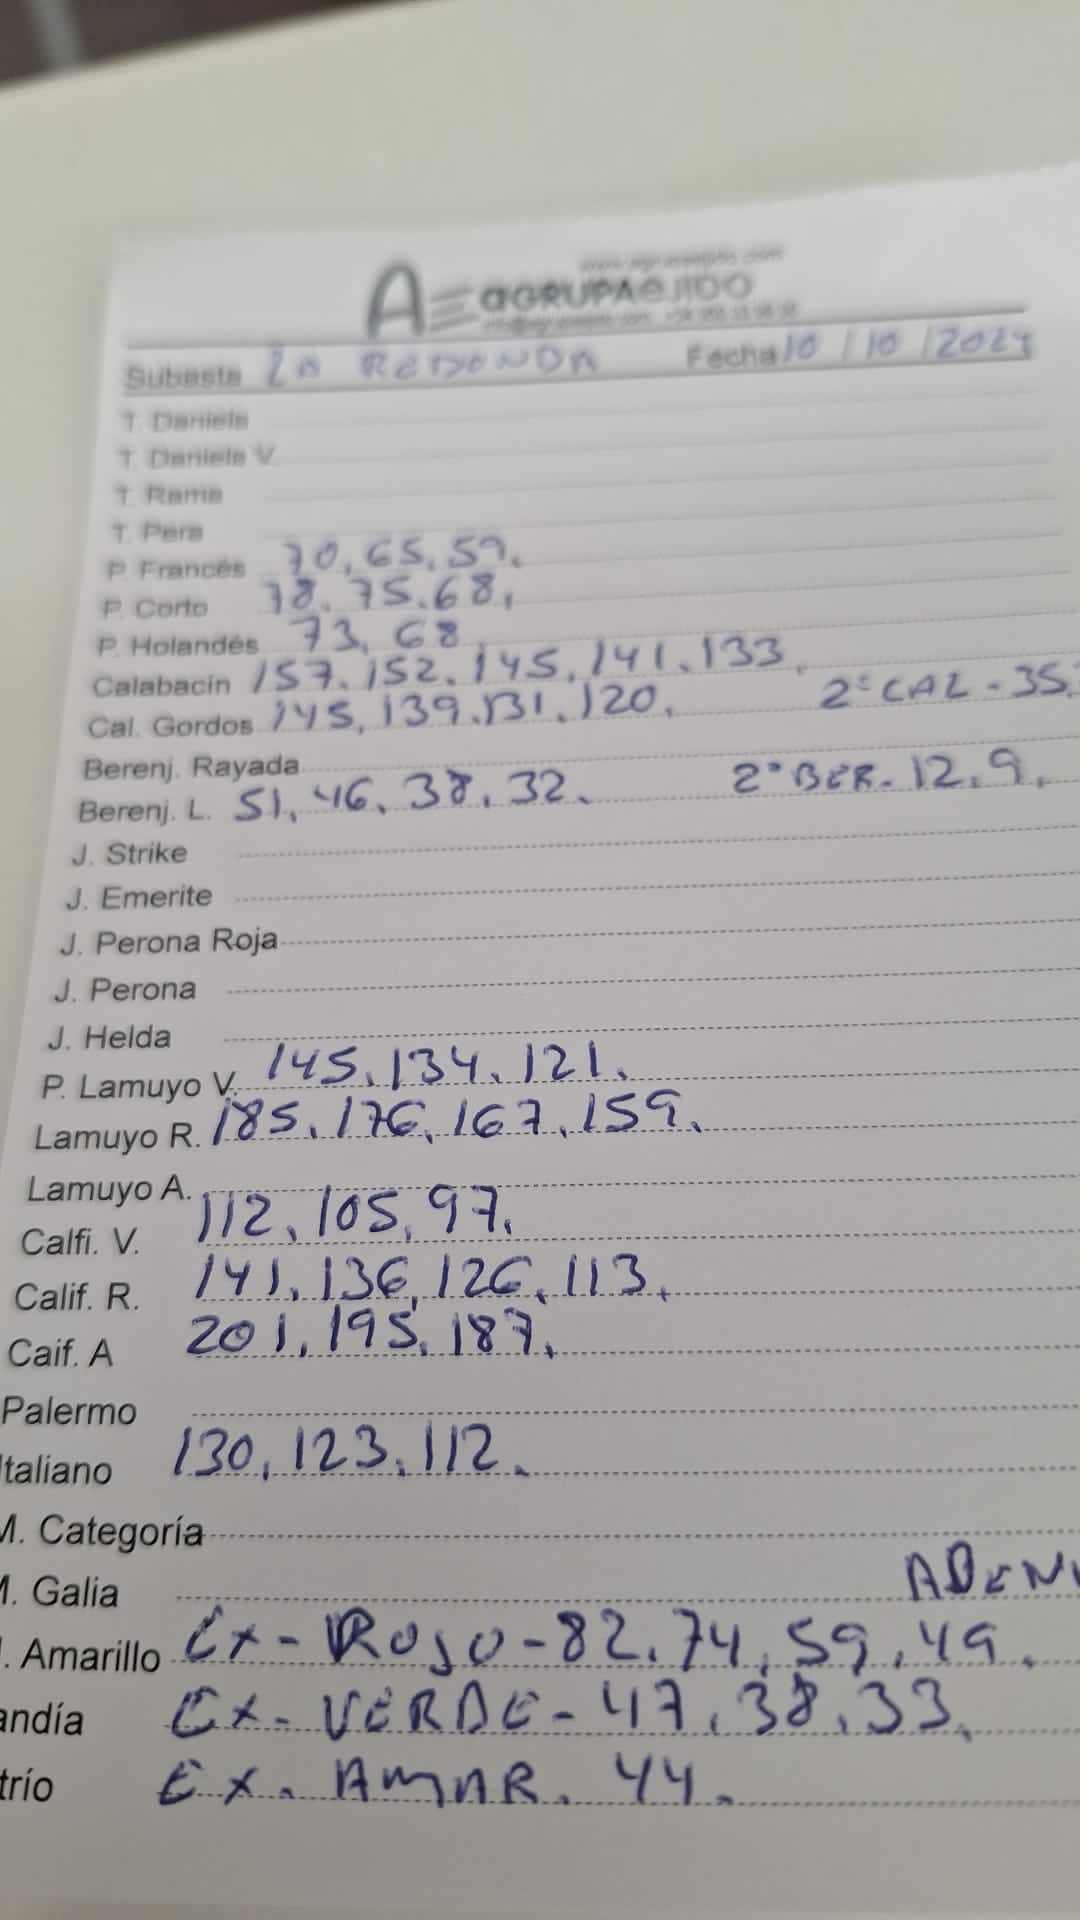 www.agrupaejido.com
AGRUPAEJIDO
Subasta La REDONDA Fecha 10/10/2024
T. Daniela
T. Daniela V.
T. Rama
T. Pera
P. Francés 70, 65, 59.
P. Corto 78. 75. 68.
P. Holandés 73, 68.
Calabacín 157. 152. 145. 141. 133.
Cal. Gordos 145, 139. 131. 120. 2ª CAL - 35.
Berenj. Rayada
Berenj. L. 51, 46, 38, 32. 2ª BER. 12. 9.
J. Strike
J. Emerite
J. Perona Roja
J. Perona
J. Helda
P. Lamuyo V. 145. 134. 121.
Lamuyo R. 185. 176. 167. 159.
Lamuyo A.
Calfi. V. 112. 105. 97.
Calif. R. 141. 136. 126. 113.
Caif. A 201. 195. 187.
Palermo
Italiano 130, 123. 112.
M. Categoría
M. Galia
. Amarillo Ex - ROJO - 82. 74. 59. 49.
andía Ex - VERDE - 47. 38. 33.
trío Ex. AMAR. 44.